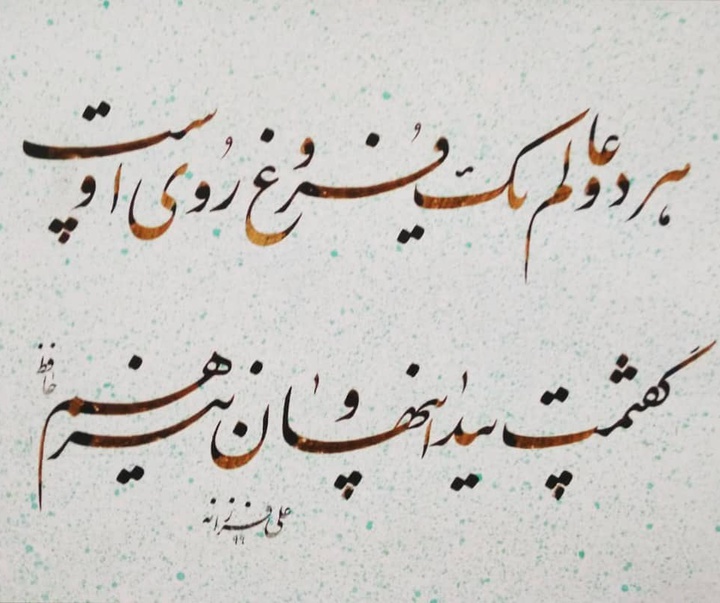 هر دو عالم یک فروغ روی اوست
گفتمت پیدا و پنهان نیز هم
حافظ
علی فرزانه
۹۹